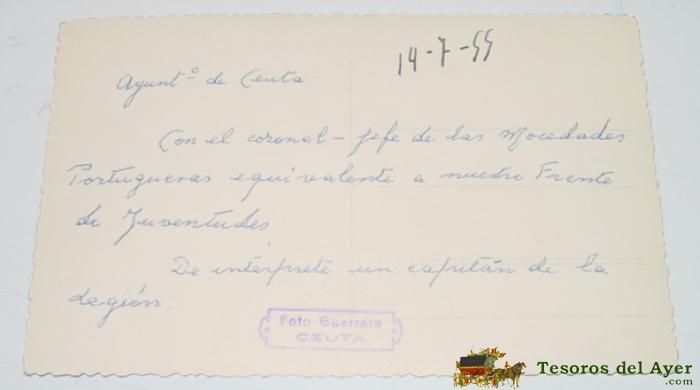 14-7-55
Ayuntº de Ceuta
Con el coronel - jefe de las Mocedades
Portuguesas equivalente a nuestro Frente
de Juventudes
De intérprete un capitán de la
Legión
Foto Guerrero
CEUTA
Tesoros del Ayer
.com